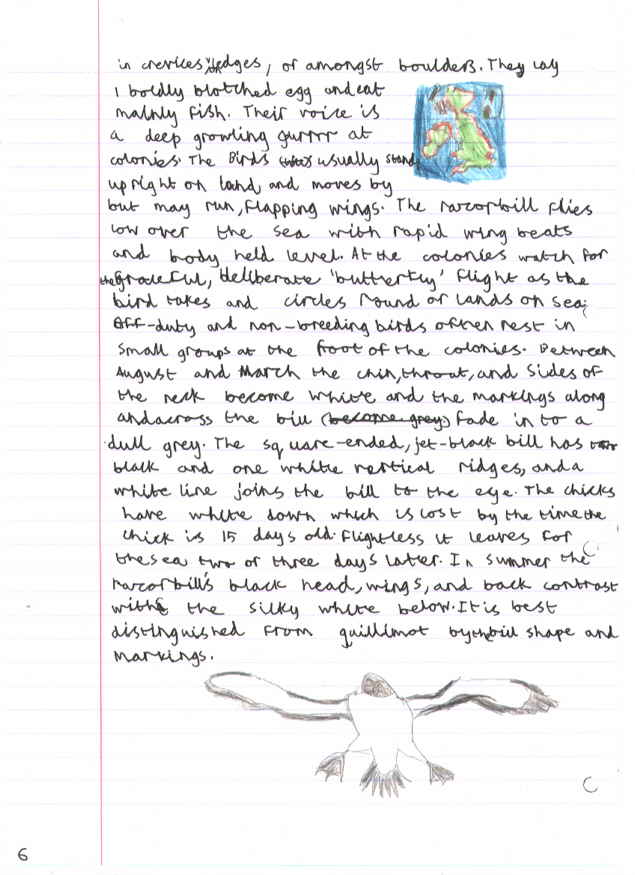 in crevices, on ledges, or amongst boulders. They lay
1 boldly blotched egg and eat
mainly fish. Their voice is
a deep growling gurrrr at
colonies. The Birds usually stand
upright on land, and moves by
but may run, flapping wings. The razorbill flies
low over the sea with rapid wing beats
and body held level. At the colonies watch for
the graceful, deliberate 'butterfly' flight as the
bird takes and circles round or lands on sea;
Off-duty and non-breeding birds often rest in
small groups at the foot of the colonies. Between
August and March the chin, throat, and sides of
the neck become white and the markings along
and across the bill (become grey) fade in to a
dull grey. The square-ended, jet-black bill has
black and one white vertical ridges, and a
white line joins the bill to the eye. The chicks
have white down which is lost by the time the
chick is 15 days old. Flightless it leaves for
the sea two or three days later. In summer the
razorbill's black head, wings, and back contrast
with the silky white below. It is best
distinguished from guillimot by the bill shape and
markings.
6